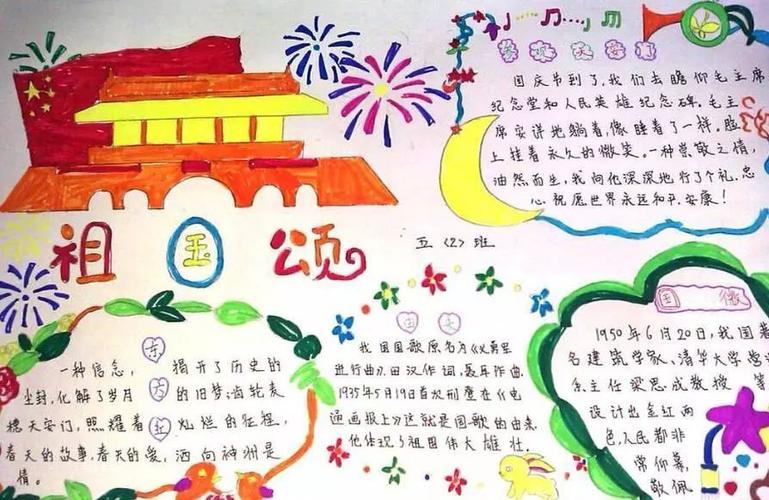 参观天安门
国庆节到了,我们去瞻仰毛主席
纪念堂和人民英雄纪念碑。毛主
席安详地躺着,像睡着了一样,脸
上挂着永久的微笑。一种崇敬之情,
油然而生,我向他深深地行了个礼。忠
心祝愿世界永远和平.安康!
祖国颂
五〈2〉班
东方红
一种信念,揭开了历史的
尘封,化解了岁月的旧梦;齿轮麦
穗天安门,照耀着灿烂的征程,
春天的故事,春天的爱,洒向神洲是
情。
由来
我国国歌原名为《义勇军
进行曲》,田汉作词、聂耳作曲.
1935年5月19日首次刊登在《电
通画报上》这就是国歌的由来.
他体现了祖国伟大雄壮.
国徽
1950年6月20日,我国著
名建筑学家、清华大学
系主任梁思成教授等
设计出金红两
色,人民都非
常仰慕,
敬佩